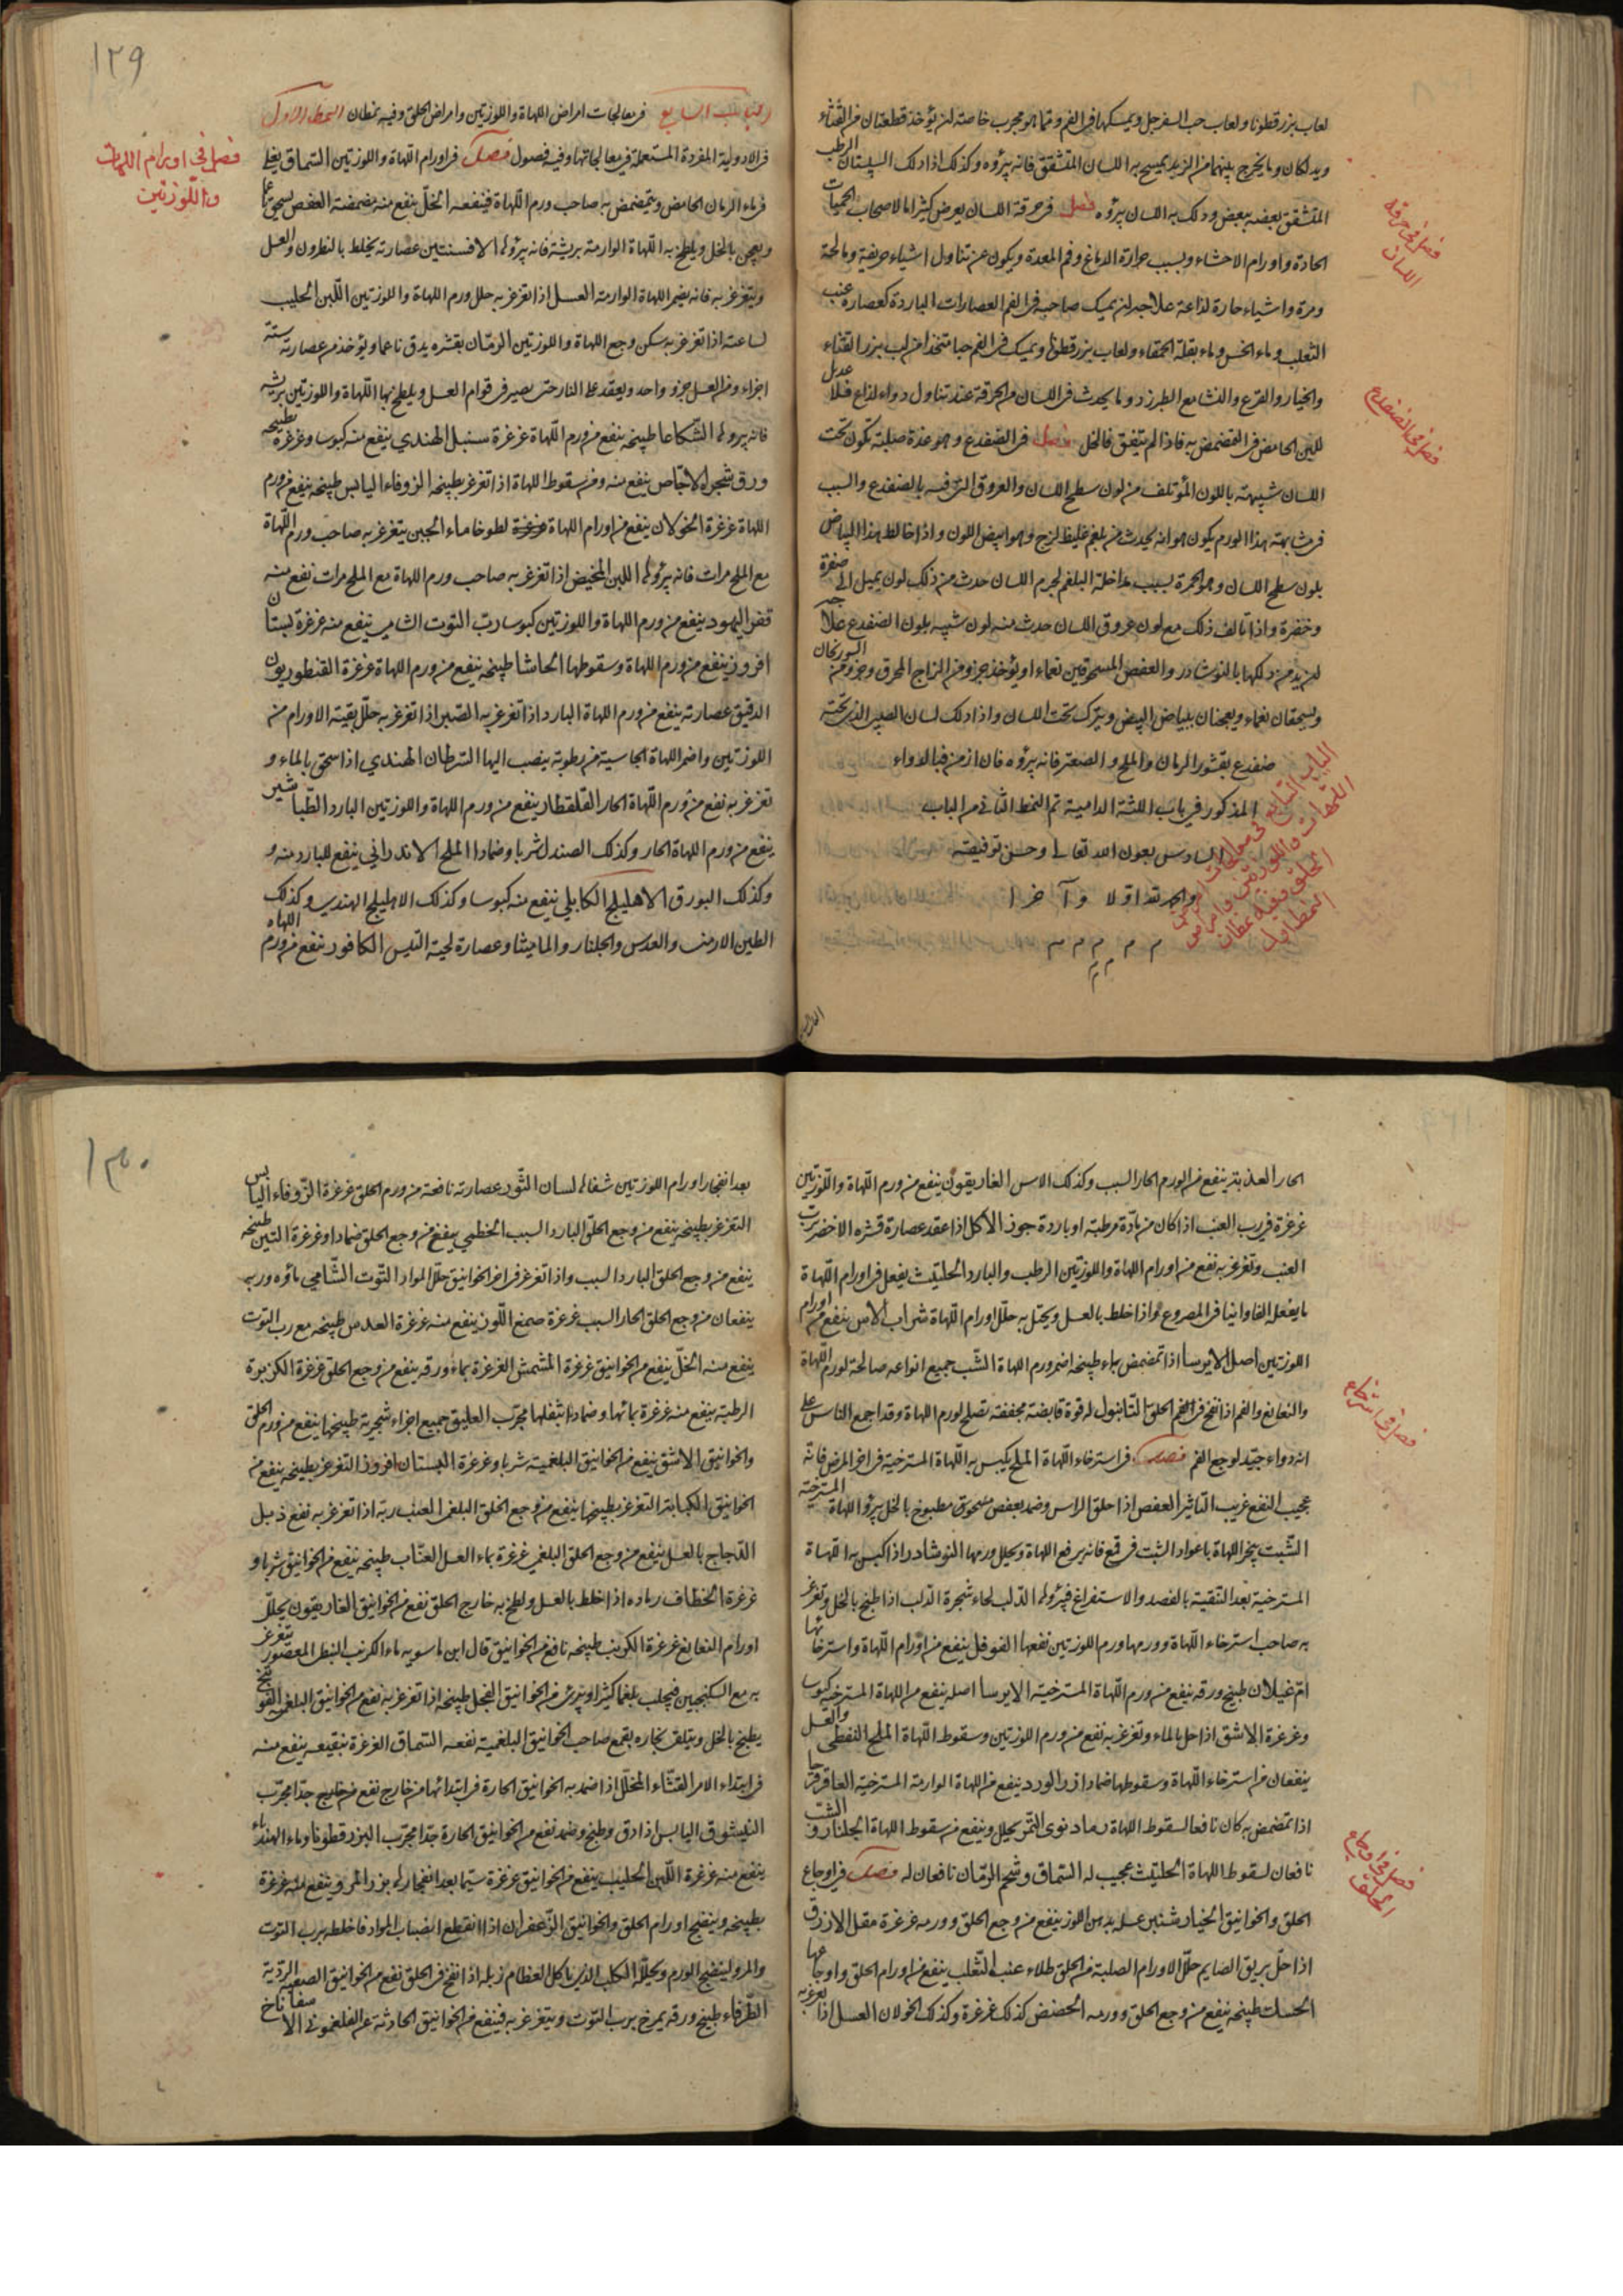 لعاب بزرقطونا ولعاب حب السفرجل ويمسكها في الفم ومما هو مجرب خاصته ان يؤخذ قطعتان من القثاء الرطب
ويدلكان وما يخرج بينهما من الزبد يمسح به اللسان المتشقق فانه يبرؤه وكذلك اذا دلك السپستان
المتشقق بعضه ببعض ودلك به اللسان يبرؤه فصل في حرقة اللسان يعرض كثيرا ما لاصحاب الحميات
الحادة واورام الاحشاء وبسبب حرارة الدماغ وفم المعدة ويكون عن تناول اشياء حريفة ومالحة
ومرة واشياء حارة لذاعة علاجه ان يمسك صاحبه في الفم العصارات الباردة كعصارة عنب
الثعلب وماء الخس وماء بقلة الحمقاء ولعاب بزرقطونا ويمسك في الفم حبا متخذا من لب بزر القثاء
والخيار والقرع والنشا مع الطبرزد وما يحدث في اللسان من الحرقة عند تناول دواء لذاع فلا عديل
للبن الحامض في التمضمض به فاذا لم يتفق فالخل فصل في الضفدع وهو غدة صلبة تكون تحت
اللسان شبيهة باللون المؤتلف من لون سطح اللسان والعروق التي فيه بالضفدع والسبب
في مشابهة هذا الورم يكون هو انه يحدث من بلغم غليظ لزج وهو ابيض اللون واذا خالط هذا البياض
بلون سطح اللسان وهو الحمرة بسبب مداخلة البلغم لجرم اللسان حدث من ذلك لون يميل الى صفرة
وخضرة واذا تالف ذلك مع لون عروق اللسان حدث منه لون شبيه بلون الضفدع علاجه
ان يدمن دلكها بالنوشادر والعفص المسحوقين نعماء او يؤخذ جزو من الزاج المحرق وجزو من السورنجان
ويسحقان نعماء ويعجنان ببياض البيض ويترك تحت اللسان واذا دلك لسان الصبي الذي تحته
ضفدع بقشور الرمان والملح والصعتر فانه يبرؤه فان ازمن فبالدواء
المذكور في باب اللثة الدامية تم النمط الثاني من الباب
السادس بعون الله تعالى وحسن توفيقه
والحمد لله اولا و آ خر ا
م م م م م
فصل في حرقة
اللسان
فصل في الضفدع
الباب السابع في معالجات امراض
اللهات واللوزتين وامراض
الحلق وفيه نمطان
النمط الاول
١٢٩
الباب السابع في معالجات امراض اللهاة واللوزتين وامراض الحلق وفيه نمطان النمط الاول
في الادوية المفردة المستعملة في معالجاتها وفيه فصول فصل في اورام اللهاة واللوزتين السماق يغلى
في ماء الرمان الحامض ويتمضمض به صاحب ورم اللهاة فينفعه الخل ينفع منه مضمضة العفص يسحق ناعما
ويعجن بالخل ويلطخ به اللهاة الوارمة بريشة فانه يبرؤها الافسنتين عصارته يخلط بالنطرون والعسل
ويتغرغر به فانه يضمر اللهاة الوارمة العسل اذا تغرغر به حلل ورم اللهاة واللوزتين اللبن الحليب
لساعته اذا تغرغر به سكن وجع اللهاة واللوزتين الرمان بقشره يدق ناعما ويؤخذ من عصارته ستة
اجزاء ومن العسل جزو واحد ويعقد على النار حتى يصير في قوام العسل ويلطخ بها اللهاة واللوزتين بريشة
فانه يبرؤها الشكاعا طبيخه ينفع من ورم اللهاة غرغرة سنبل الهندي ينفع منه كبوسا وغرغرة بطبيخه
ورق شجرة الاجاص ينفع منه ومن سقوط اللهاة اذا تغرغر بطبيخه الزوفاء اليابس طبيخه ينفع من ورم
اللهاة غرغرة الخولان ينفع من اورام اللهاة غرغرة لطوخا ماء الجبن يتغرغر به صاحب ورم اللهاة
مع الملح مرات فانه يبرؤها اللبن المخيض اذا تغرغر به صاحب ورم اللهاة مع الملح مرات نفع منه
قفر اليهود ينفع من ورم اللهاة واللوزتين كبوسا رب التوت الشامي ينفع منه غرغرة بستان
افروز ينفع من ورم اللهاة وسقوطها الحاشا طبيخه ينفع من ورم اللهاة غرغرة القنطوريون
الدقيق عصارته ينفع من ورم اللهاة البارد اذا تغرغر به الصبر اذا تغرغر به حلل بقية الاورام من
اللوزتين واضمر اللهاة الجاسية من رطوبة ينصب اليها السرطان الهندي اذا سحق بالماء و
تغرغر به نفع من ورم اللهاة الحار القلقطار ينفع من ورم اللهاة واللوزتين البارد الطباشير
ينفع من ورم اللهاة الحار وكذلك الصندل شربا وضمادا الملح الاندراني ينفع للبارد منه و
وكذلك البورق الاهليلج الكابلي ينفع منه كبوسا وكذلك الاهليلج الهندي وكذلك
الطين الارمني والعدس والجلنار والماميثا وعصارة لحية التيس الكافور ينفع من ورم اللهاة
فصل في اورام اللهات
واللوزتين
الحار العذبة ينفع من الورم الحار السبب وكذلك الاس الغاريقون ينفع من ورم اللهاة واللوزتين
غرغرة في رب العنب اذا كان من مادة مرطبة او باردة جوز الاكل اذا عقد عصارة قشره الاخضر برب
العنب وتغرغر به نفع من اورام اللهاة واللوزتين الرطب والبارد الحلتيت يفعل في اورام اللهاة
ما يفعله الفاوانيا في المصروع واذا خلط بالعسل ويحنك به حلل اورام اللهاة شراب الاس ينفع من اورام
اللوزتين اصل الايرسا اذا تمضمض بماء طبيخه اضمر ورم اللهاة الشب جميع انواعه صالحة لورم اللهاة
والنغانغ والفم اذا نفخ في الفم الحلق التانبول له قوة قابضة مجففة تصلح لورم اللهاة وقد اجمع الناس على
انه دواء جيد لوجع الفم فصل في استرخاء اللهاة الملح يكبس به اللهاة المسترخية في اخر المرض فانه
عجيب النفع غريب التاثير العفص اذا حلق الراس وضمد بعفص مسحوق مطبوخ بالخل يبرؤ اللهاة المسترخية
الشبت يبخر اللهاة باعواد الشبت في قمع فانه يرفع اللهاة ويحلل ورمها النوشادر اذا كبس به اللهاة
المسترخية بعد التنقية بالفصد والاستفراغ فيبرؤها الدلب لحاء شجرة الدلب اذا طبخ بالخل وتغرغر
به صاحب استرخاء اللهاة وورمها وورم اللوزتين نفعها الفوفل ينفع من اورام اللهاة واسترخائها
ام غيلان طبيخ ورقه ينفع من ورم اللهاة المسترخية الايرسا اصله ينفع من اللهاة المسترخية كبوسا
وغرغرة الاشق اذا حل بالماء والعسل وتغرغر به نفع من ورم اللوزتين وسقوط اللهاة الملح النفطي
ينفعان من استرخاء اللهاة وسقوطها ضمادا زر الورد ينفع من اللهاة الوارمة المسترخية العاقرقرحا
اذا تمضمض به كان نافعا لسقوط اللهاة رماد نوى التمر يحلل وينفع من سقوط اللهاة الجلنار والشب
نافعان لسقوط اللهاة الحلتيت عجيب له السماق وشحم الرمان نافعان له فصل في اوجاع
الحلق والخوانيق الخيارشنبر عسله بدهن اللوز ينفع من وجع الحلق وورمه غرغرة مقل الازرق
اذا حل بريق الصايم حلل الاورام الصلبة في الحلق طلاء عنب الثعلب ينفع من اورام الحلق واوجاعها
الحسك طبيخه ينفع من وجع الحلق وورمه الحضض كذلك غرغرة وكذلك الخولان العسل اذا تغرغر به
فصل في استرخاء
فصل في اوجاع
الحلق
١٣٠
بعد انفجار اورام اللوزتين شفاها لسان الثور عصارته نافعة من ورم الحلق غرغرة الزوفاء اليابس
التغرغر بطبيخه ينفع من وجع الحلق البارد السبب الخطمي ينفع من وجع الحلق ضمادا وغرغرة التين طبيخه
ينفع من وجع الحلق البارد السبب واذا تغرغر في اخر الخوانيق حلل المواد التوت الشامي ماؤه وربه
ينفعان من وجع الحلق الحار السبب غرغرة صمغ اللوز ينفع منه غرغرة العدس طبيخه مع رب التوت
ينفع منه الخل ينفع من الخوانيق غرغرة المشمش الغرغرة بماء ورقه ينفع من وجع الحلق غرغرة الكزبرة
الرطبة ينفع منه غرغرة بمائها وضمادا بثفلها مجرب العليق جميع اجزاء شجرته طبيخها ينفع من ورم الحلق
والخوانيق الاشق ينفع من الخوانيق البلغمية شربا وغرغرة البستان افروز التغرغر بطبيخه ينفع من
الخوانيق الكبابة التغرغر بطبيخها ينفع من وجع الحلق البلغمي العنب ربه اذا تغرغر به نفع ذبل
الدجاج بالعسل ينفع من وجع الحلق البلغمي غرغرة بماء العسل العناب طبيخه ينفع من الخوانيق شربا و
غرغرة الخطاف رماده اذا خلط بالعسل ولطخ به خارج الحلق نفع من الخوانيق الغاريقون يحلل
اورام النغانغ غرغرة الكرنب طبيخه نافع من الخوانيق قال ابن ماسويه ماء الكرنب النبطي المعصور يتغرغر
به مع السكنجبين فيجلب بلغما كثيرا ويبرئ من الخوانيق الفجل طبيخه اذا تغرغر به نفع من الخوانيق البلغمية الفوتنج
يطبخ بالخل ويتلقى بخاره بقمع صاحب الخوانيق البلغمية نفعه السماق الغرغرة بنقيعه ينفع منه
في ابتداء الامر القثاء المخلل اذا ضمد به الخوانيق الحارة في ابتدائها من خارج نفع من خليج جدا مجرب
اليابس اذا دق وطبخ وضمد نفع من الخوانيق الحارة جدا مجرب البزرقطونا وماء الهندباء
ينفع منه غرغرة اللبن الحليب ينفع من الخوانيق غرغرة سيما بعد انفجارها بزر المر وينفع منه غرغرة
بطبيخه وينضج اورام الحلق والخوانيق الزعفران اذا انقطع انصباب المواد فاخلطه برب التوت
والمر ولينضج الورم ويحلله الكلب الذي ياكل العظام زبله اذا نفخ في الحلق نفع من الخوانيق الصعبة الردية
الطرفاء طبيخ ورقه يمزج برب التوت ويتغرغر به فينفع من الخوانيق الحادثة عن الفلغموني الاسفاناخ